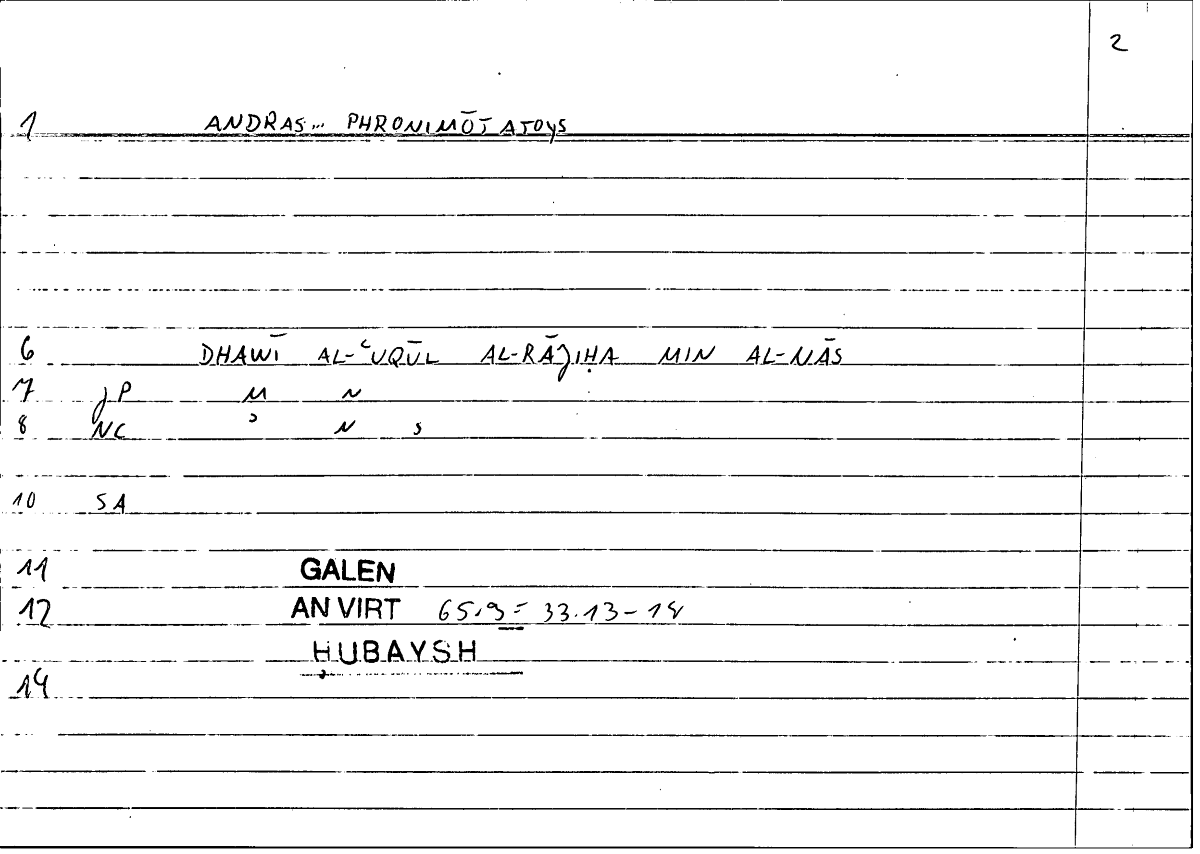 2
1 ANDRAS... PHRONIMŌTATOYS
6 DHAWĪ AL-ʿUQŪL AL-RĀJIḤA MIN AL-NĀS
7 jP M N
8 NC ʾ N S
10 SA
11 GALEN
12 AN VIRT 65.9 = 33.13-14
ḤUBAYSH
14